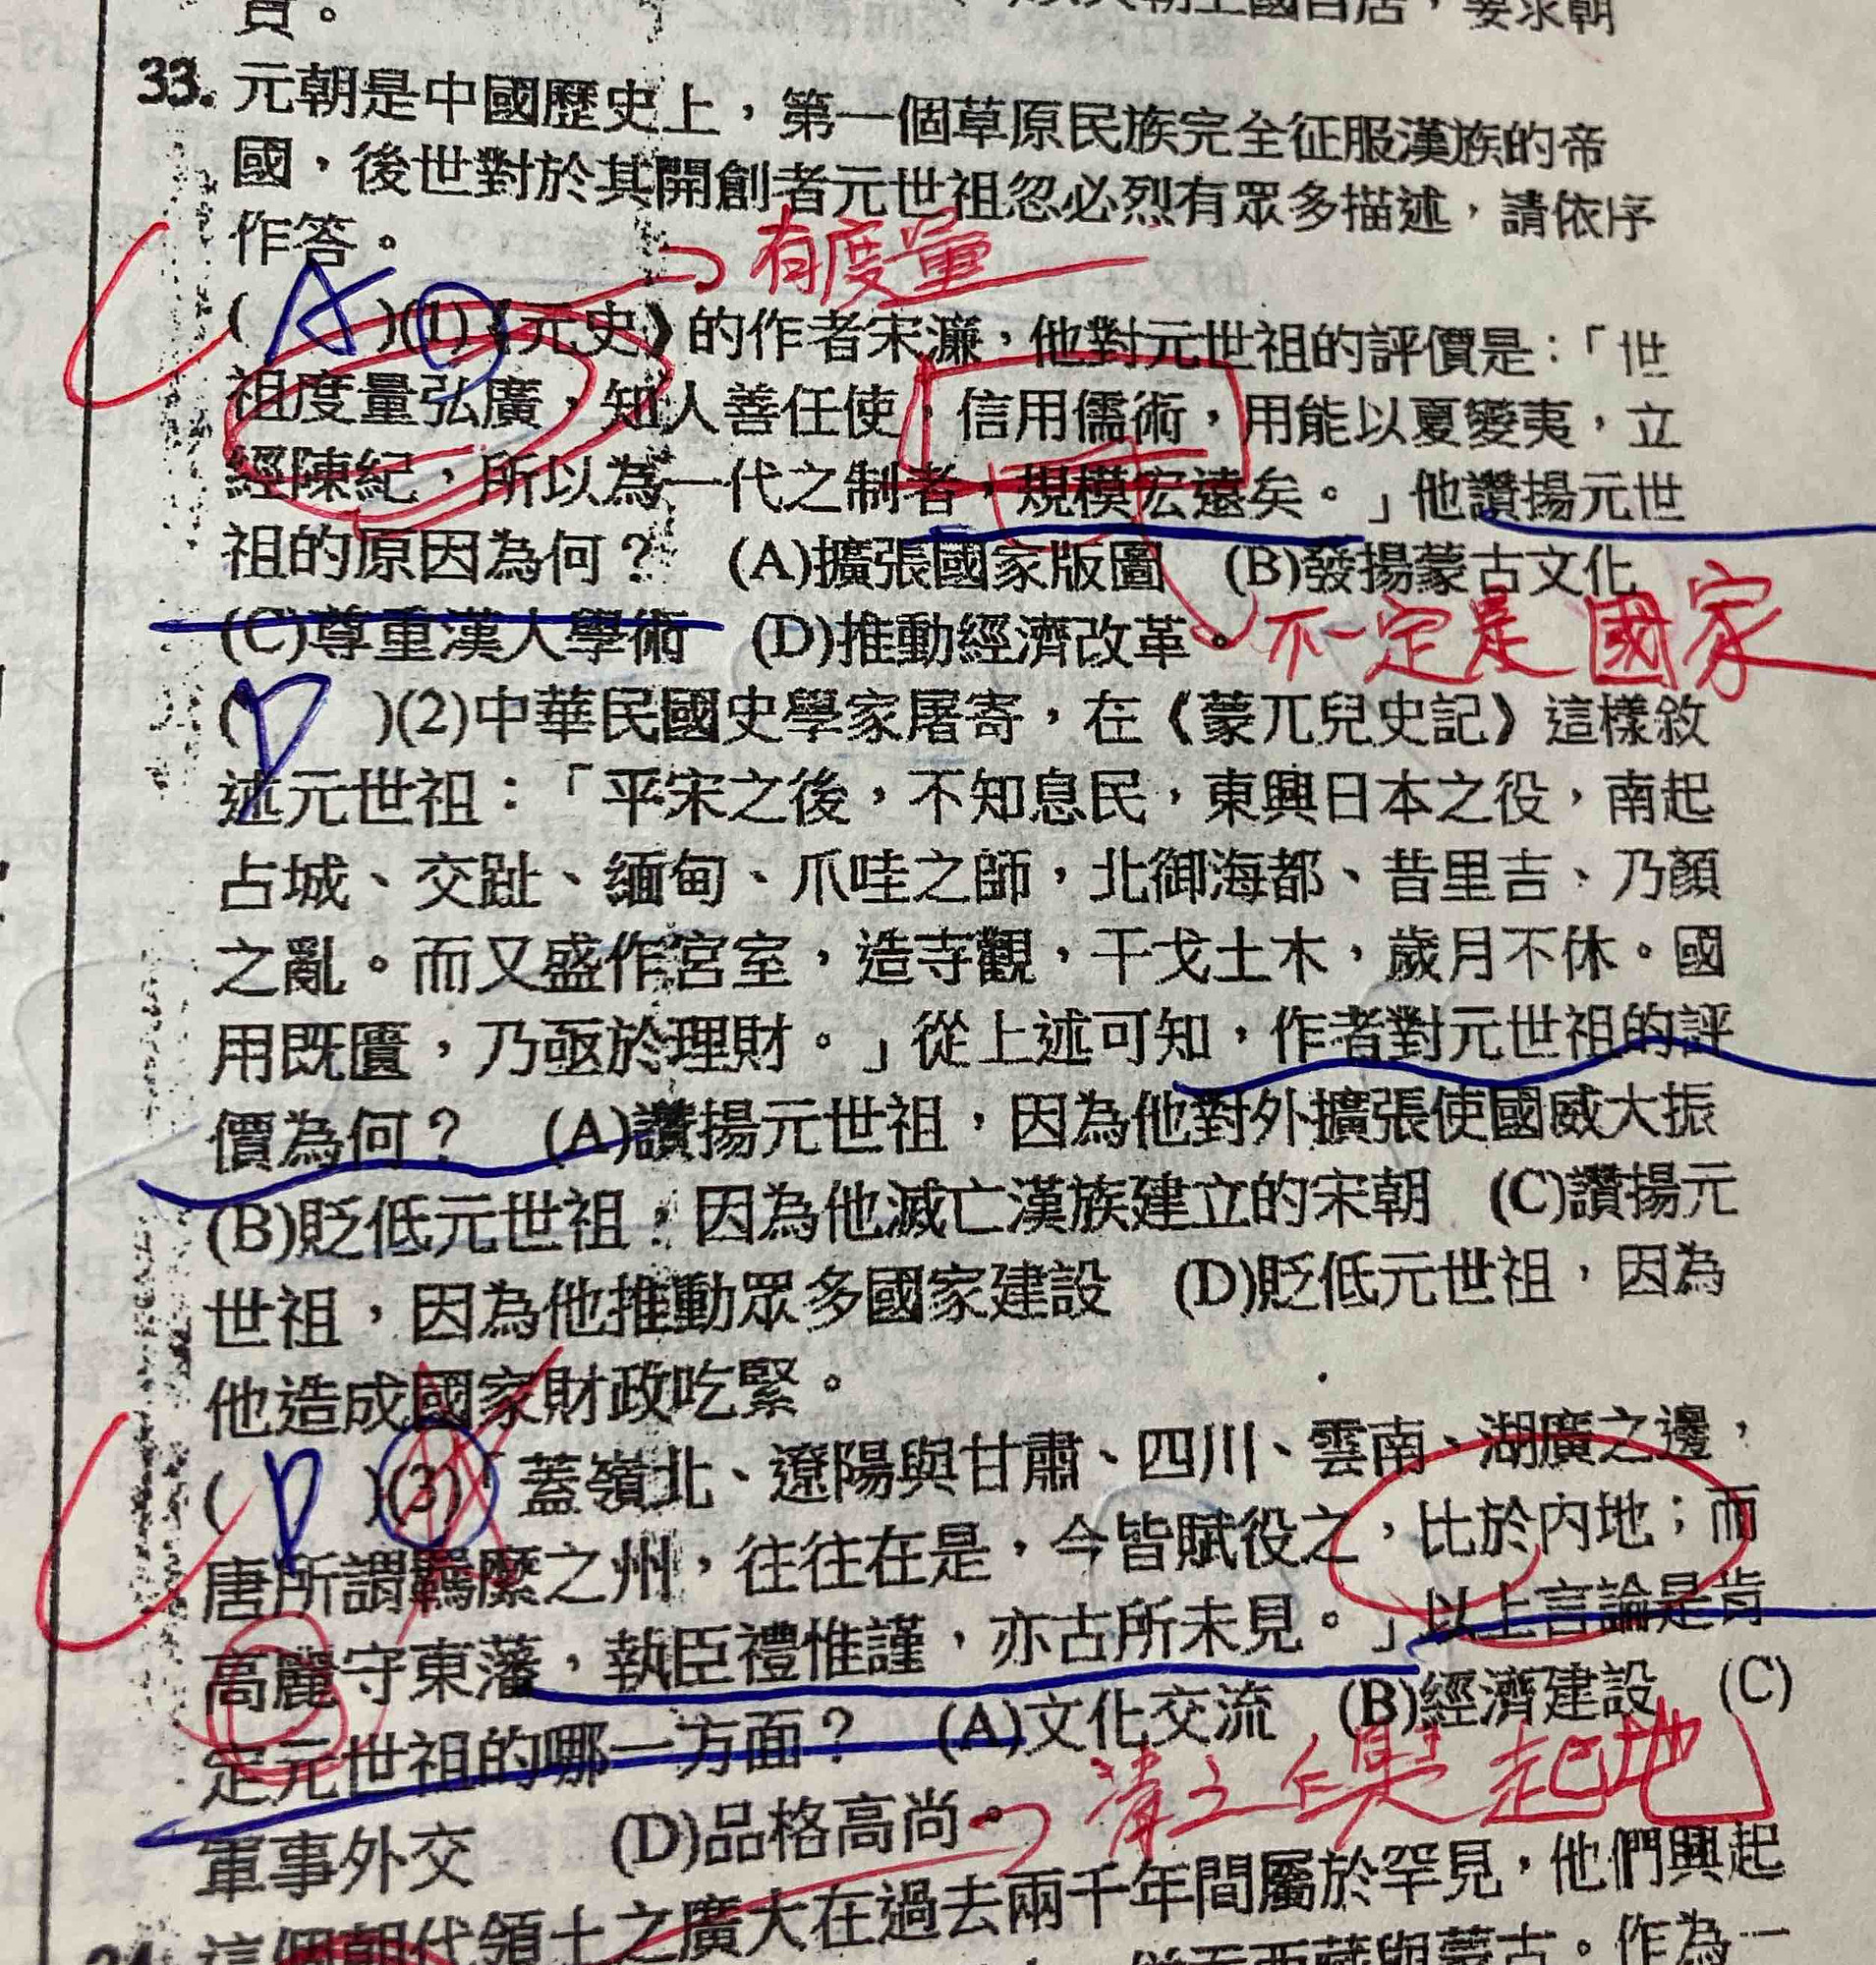 貢。
，要求朝
33. 元朝是中國歷史上，第一個草原民族完全征服漢族的帝
國，後世對於其開創者元世祖忽必烈有眾多描述，請依序
作答。
有度量
( A )(1)《元史》的作者宋濂，他對元世祖的評價是：「世
祖度量弘廣，知人善任使，信用儒術，用能以夏變夷，立
經陳紀，所以為一代之制者，規模宏遠矣。」他讚揚元世
祖的原因為何？ (A)擴張國家版圖 (B)發揚蒙古文化
(C)尊重漢人學術 (D)推動經濟改革。
不一定是國家
( D )(2)中華民國史學家屠寄，在《蒙兀兒史記》這樣敘
述元世祖：「平宋之後，不知息民，東興日本之役，南起
占城、交趾、緬甸、爪哇之師，北御海都、昔里吉、乃顏
之亂。而又盛作宮室，造寺觀，干戈土木，歲月不休。國
用既匱，乃亟於理財。」從上述可知，作者對元世祖的評
價為何？ (A)讚揚元世祖，因為他對外擴張使國威大振
(B)貶低元世祖，因為他滅亡漢族建立的宋朝 (C)讚揚元
世祖，因為他推動眾多國家建設 (D)貶低元世祖，因為
他造成國家財政吃緊。
( D )(3)「蓋嶺北、遼陽與甘肅、四川、雲南、湖廣之邊，
唐所謂羈縻之州，往往在是，今皆賦役之，比於內地；而
高麗守東藩，執臣禮惟謹，亦古所未見。」以上言論是肯
定元世祖的哪一方面？ (A)文化交流 (B)經濟建設 (C)
軍事外交 (D)品格高尚。
起地
這個朝代領土之廣大在過去兩千年間屬於罕見，他們興起
西藏與蒙古。作為一